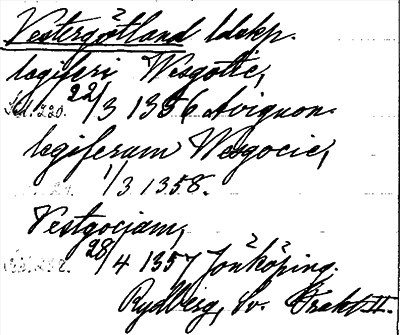 Vestergötland ldskp.
legiferi Wesgotie,
22/3 1356 Avignon.
legiferum Wesgocie,
1/3 1358.
Vestgociam,
28/4 1357 Jönköping.
Rydberg, Sv. Trakt. II.